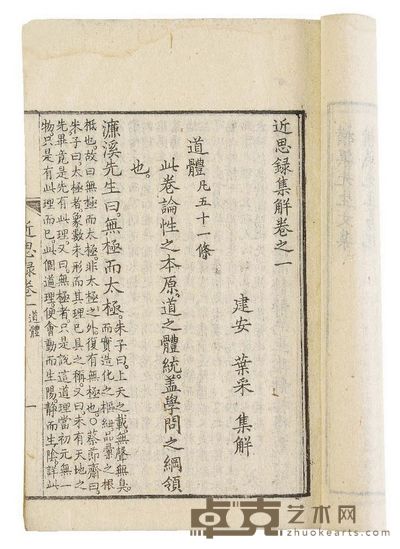 近思録集解卷之一
建安 葉采 集解
道體 凡五十一條
此卷論性之本原。道之體統。蓋學問之綱領
也。
濂溪先生曰。無極而太極。
朱子曰。上天之載。無聲無臭。
而實造化之樞紐。品彙之根
柢也。故曰無極而太極。非太極之外。復有無極也。○蔡節齋曰。
朱子曰。太極者。象數未形而其理已具之稱。又曰。未有天地之
先。畢竟是先有此理。又曰。無極者。只是說這道理當初元無一
物。只是有此理而已。此個道理。便會動而生陽。靜而生陰。詳此
近思録卷一 道體 一
卓克艺术网
www.zhuokearts.com